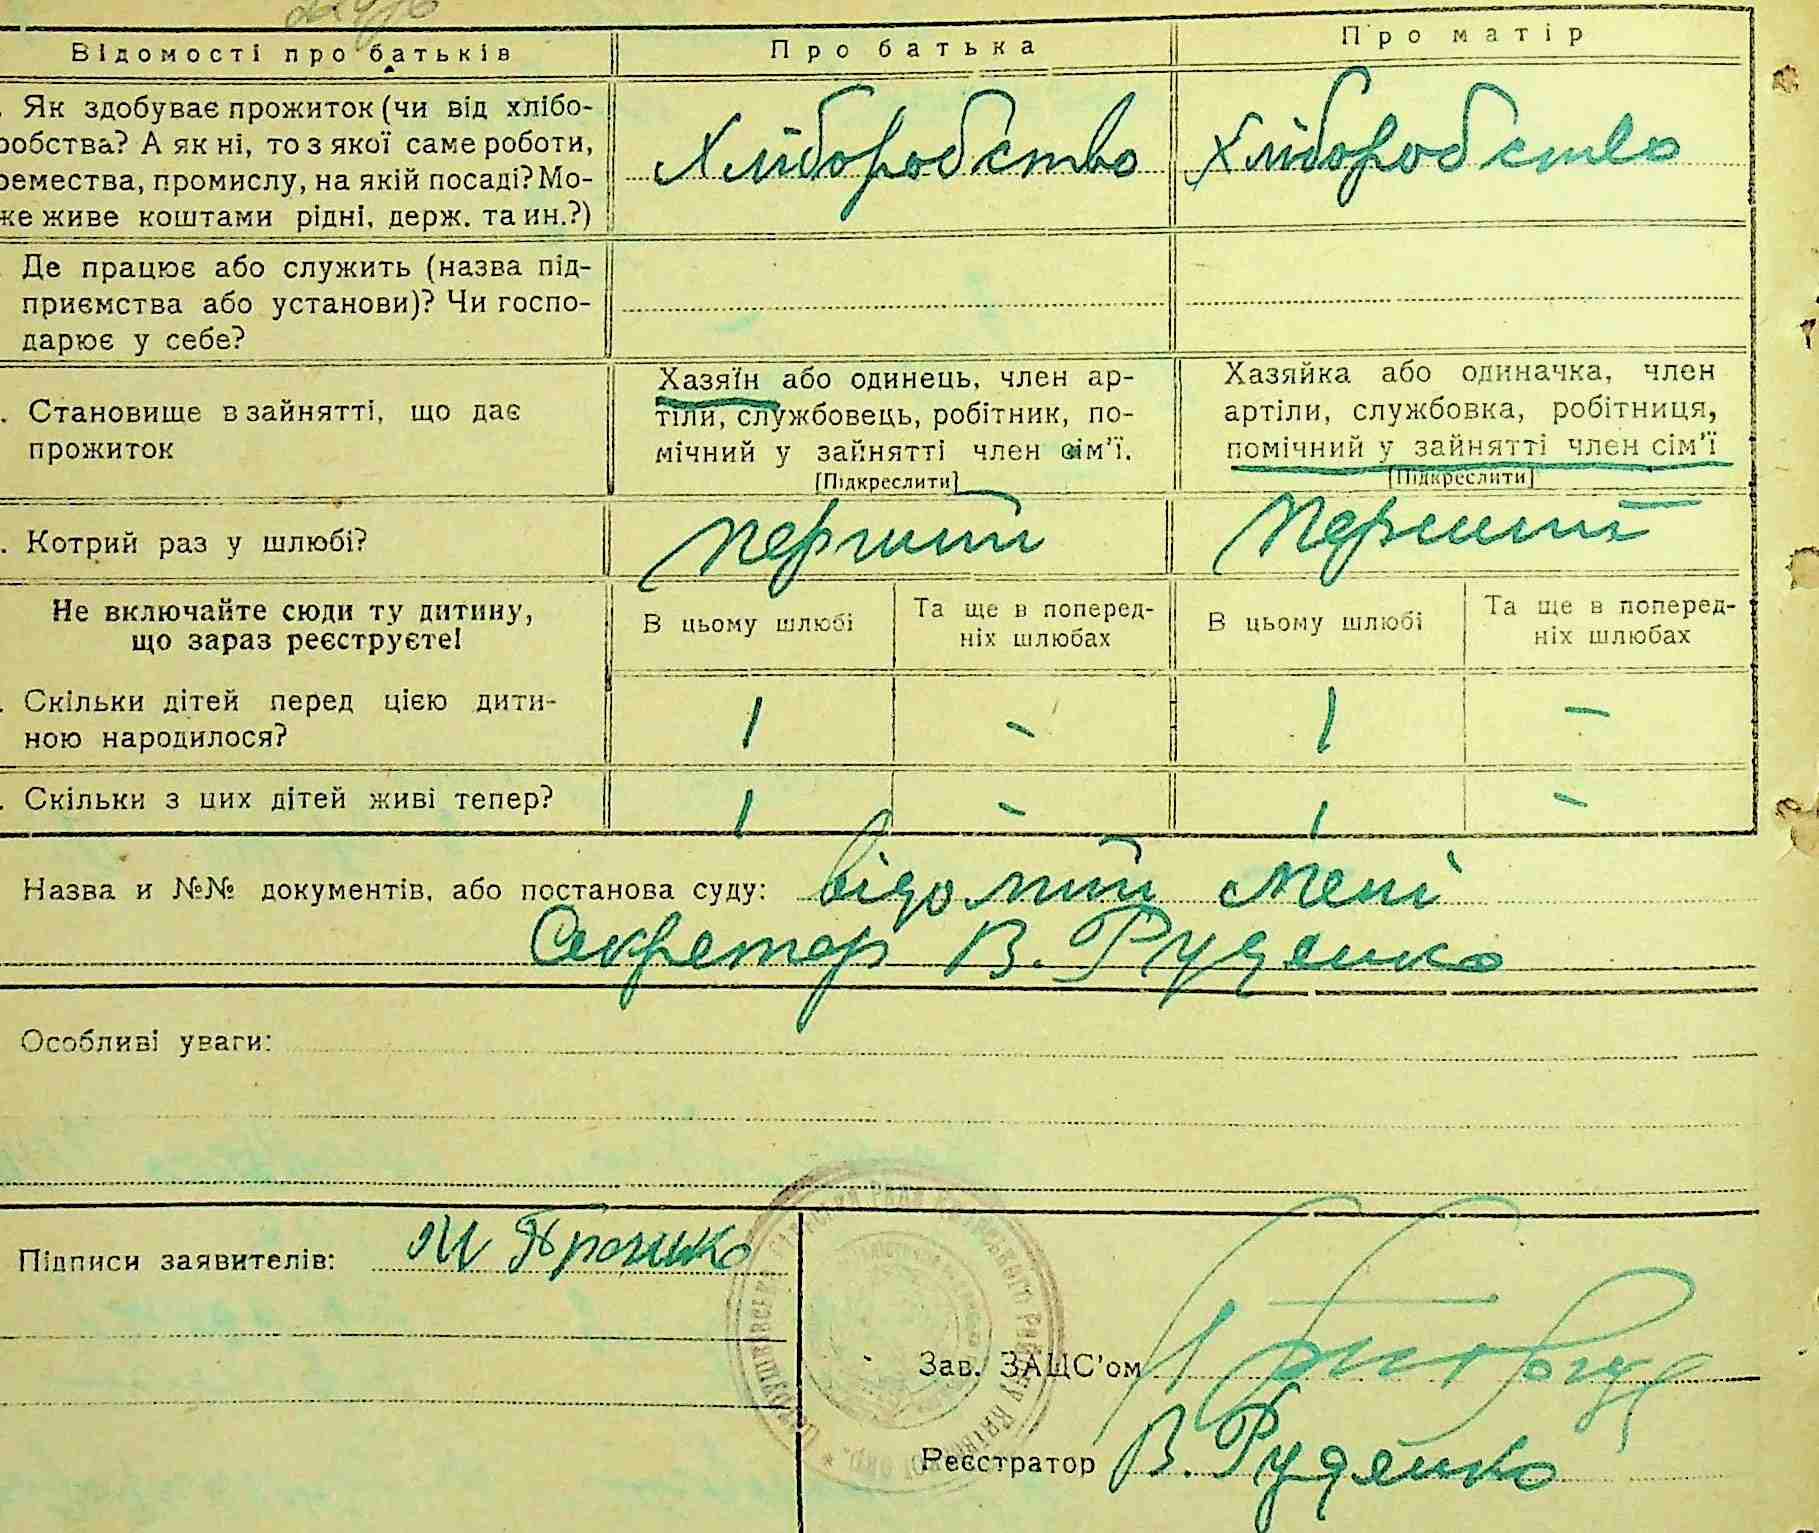 Відомості про батьків
Про батька
Про матір
. Як здобуває прожиток (чи від хлібо-
робства? А як ні, то з якої саме роботи,
ремества, промислу, на якій посаді? Мо-
же живе коштами рідні, держ. та ин.?)
Хліборобство
Хліборобство
. Де працює або служить (назва під-
приємства або установи)? Чи госпо-
дарює у себе?
. Становище в зайнятті, що дає
прожиток
Хазяїн або одинець, член ар-
тіли, службовець, робітник, по-
мічний у зайнятті член сім'ї.
[Підкреслити]
Хазяйка або одиначка, член
артіли, службовка, робітниця,
помічний у зайнятті член сім'ї
[Підкреслити]
. Котрий раз у шлюбі?
перший
перший
Не включайте сюди ту дитину,
що зараз реєструєте!
В цьому шлюбі
Та ще в поперед-
ніх шлюбах
В цьому шлюбі
Та ще в поперед-
ніх шлюбах
. Скільки дітей перед цією дити-
ною народилося?
1 - 1 -
. Скільки з цих дітей живі тепер?
1 - 1 -
Назва и №№ документів, або постанова суду: відомий мені
Секретар В. Руденко
Особливі уваги:
Підписи заявителів:
Зав. ЗАЦС'ом
Реєстратор В. Руденко